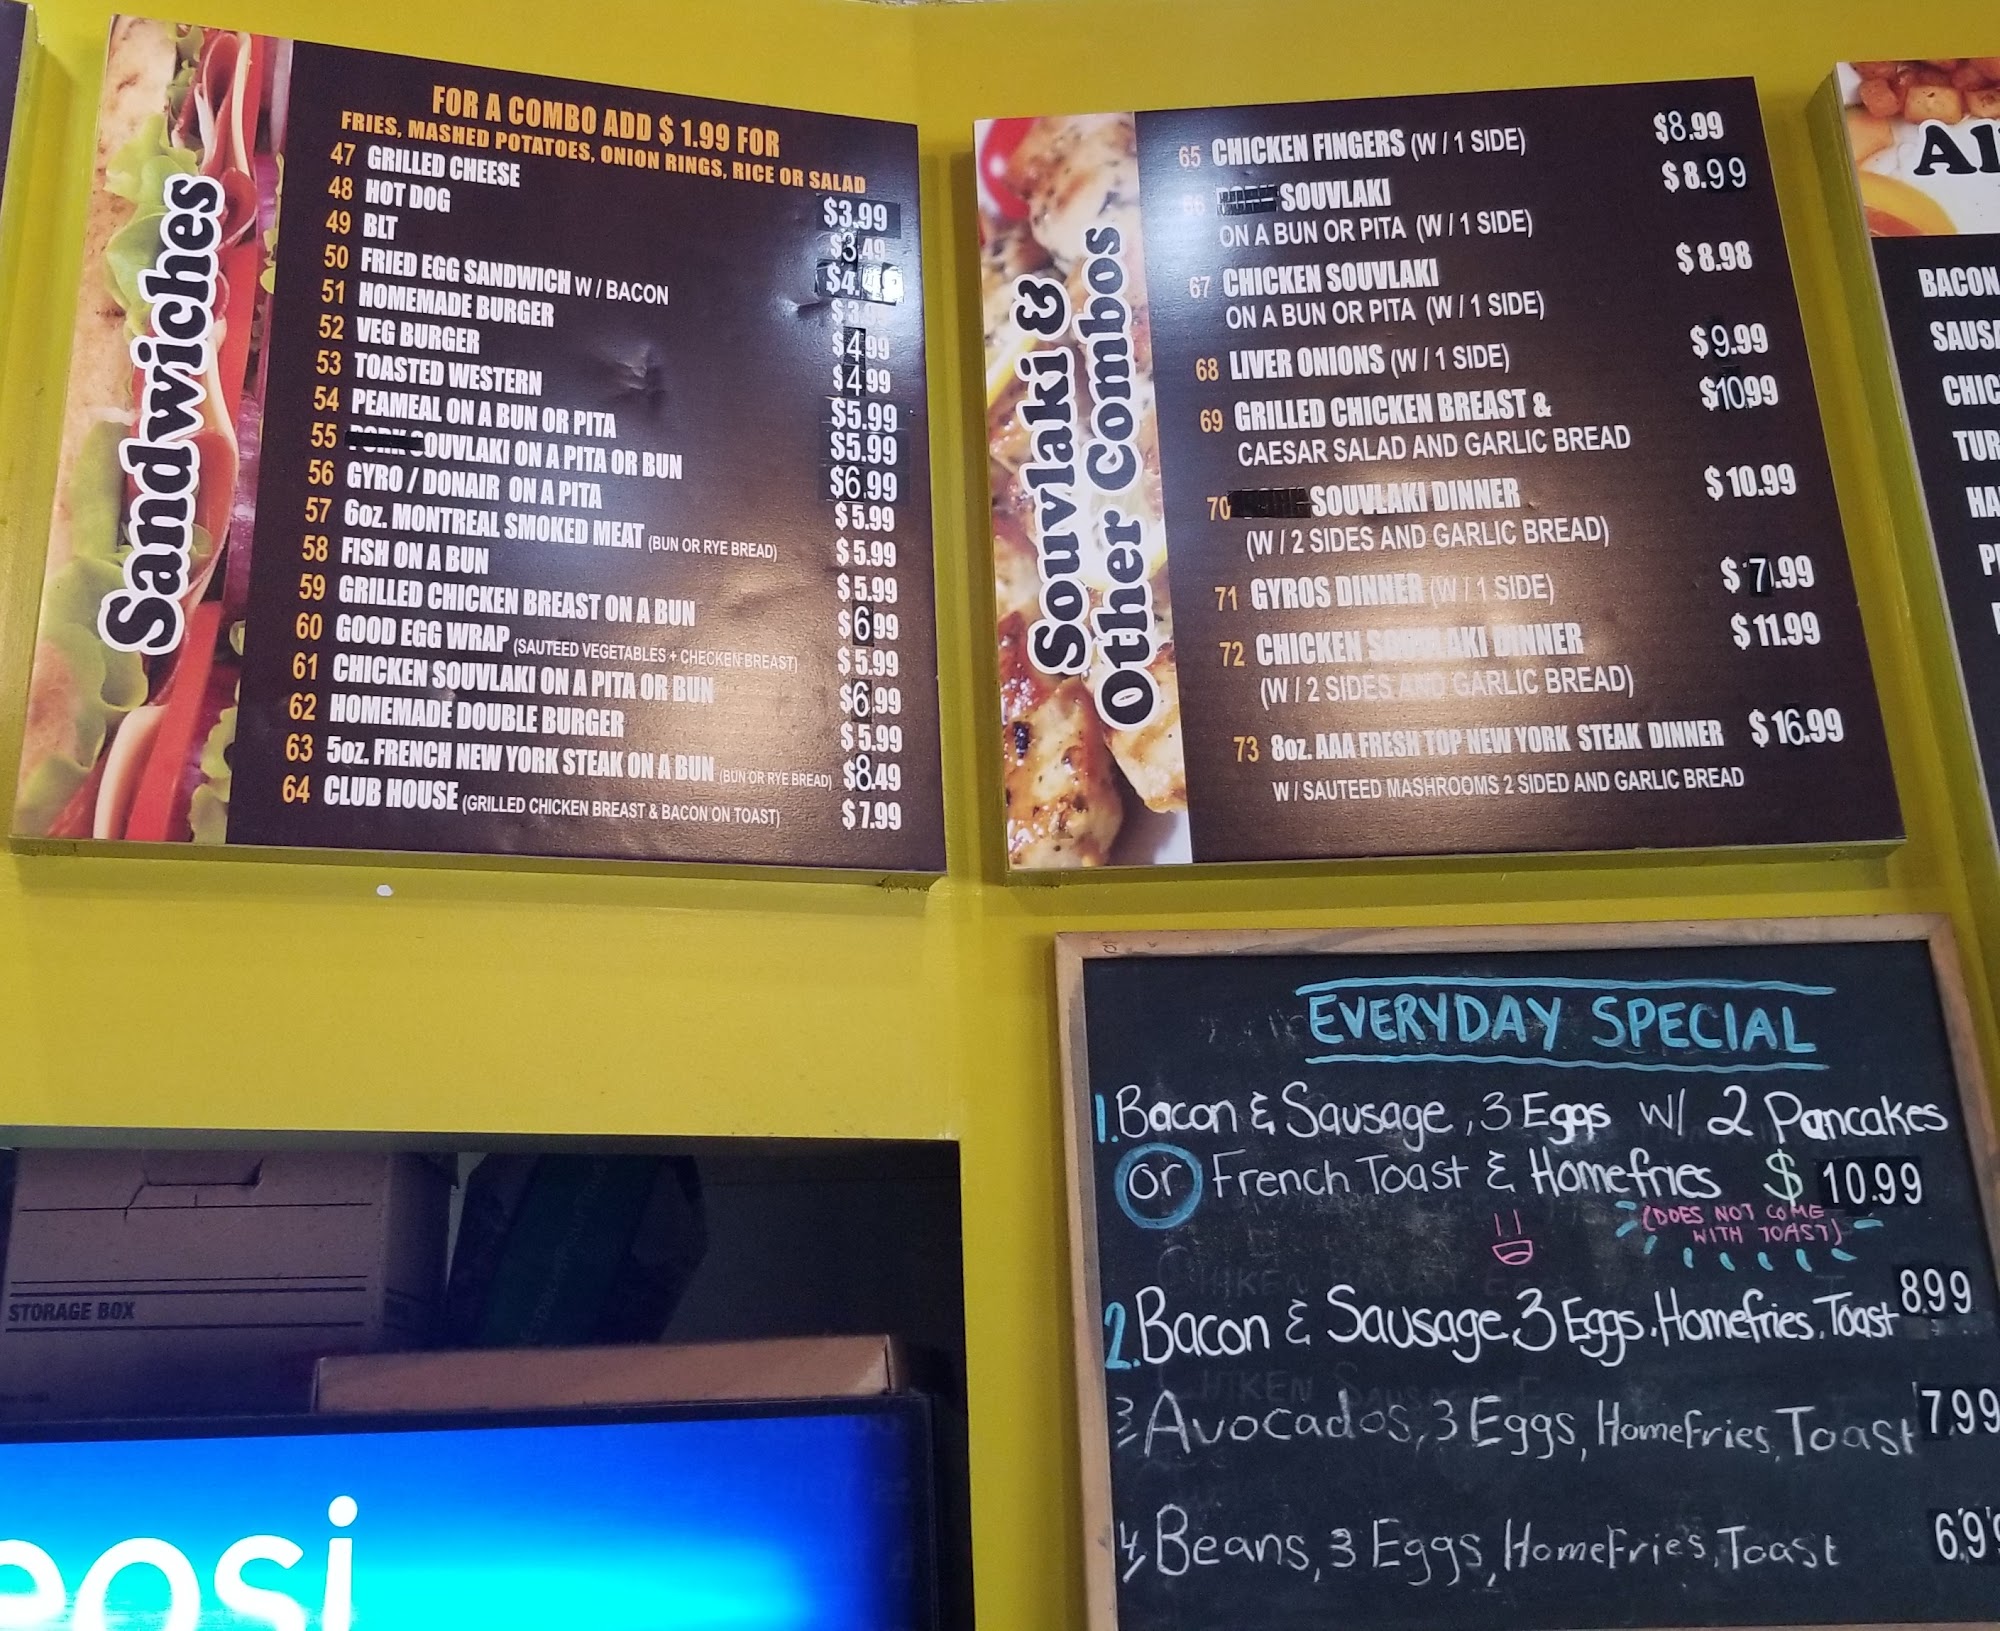 Sandwiches
FOR A COMBO ADD $ 1.99 FOR
FRIES, MASHED POTATOES, ONION RINGS, RICE OR SALAD
47 GRILLED CHEESE $3.99
48 HOT DOG $3.49
49 BLT $4.49
50 FRIED EGG SANDWICH W / BACON
51 HOMEMADE BURGER $4.99
52 VEG BURGER $4.99
53 TOASTED WESTERN $5.99
54 PEAMEAL ON A BUN OR PITA $5.99
55 SOUVLAKI ON A PITA OR BUN $6.99
56 GYRO / DONAIR ON A PITA $5.99
57 6oz. MONTREAL SMOKED MEAT (BUN OR RYE BREAD) $5.99
58 FISH ON A BUN $5.99
59 GRILLED CHICKEN BREAST ON A BUN $6.99
60 GOOD EGG WRAP (SAUTEED VEGETABLES + CHECKEN BREAST) $5.99
61 CHICKEN SOUVLAKI ON A PITA OR BUN $6.99
62 HOMEMADE DOUBLE BURGER $5.99
63 5oz. FRENCH NEW YORK STEAK ON A BUN (BUN OR RYE BREAD) $8.49
64 CLUB HOUSE (GRILLED CHICKEN BREAST & BACON ON TOAST) $7.99
Souvlaki &
Other Combos
65 CHICKEN FINGERS (W / 1 SIDE) $8.99
66 SOUVLAKI $8.99
ON A BUN OR PITA (W / 1 SIDE)
67 CHICKEN SOUVLAKI $8.98
ON A BUN OR PITA (W / 1 SIDE)
68 LIVER ONIONS (W / 1 SIDE) $9.99
69 GRILLED CHICKEN BREAST & $10.99
CAESAR SALAD AND GARLIC BREAD
70 SOUVLAKI DINNER $10.99
(W / 2 SIDES AND GARLIC BREAD)
71 GYROS DINNER (W / 1 SIDE) $7.99
72 CHICKEN SOUVLAKI DINNER $11.99
(W / 2 SIDES AND GARLIC BREAD)
73 8oz. AAA FRESH TOP NEW YORK STEAK DINNER $16.99
W / SAUTEED MASHROOMS 2 SIDED AND GARLIC BREAD
BACON
EVERYDAY SPECIAL
1. Bacon & Sausage, 3 Eggs w/ 2 Pancakes
or French Toast & Homefries $10.99
(DOES NOT COME
WITH TOAST)
2. Bacon & Sausage, 3 Eggs, Homefries, Toast 8.99
3 Avocados, 3 Eggs, Homefries, Toast 7.99
4, Beans, 3 Eggs, Homefries, Toast
STORAGE BOX